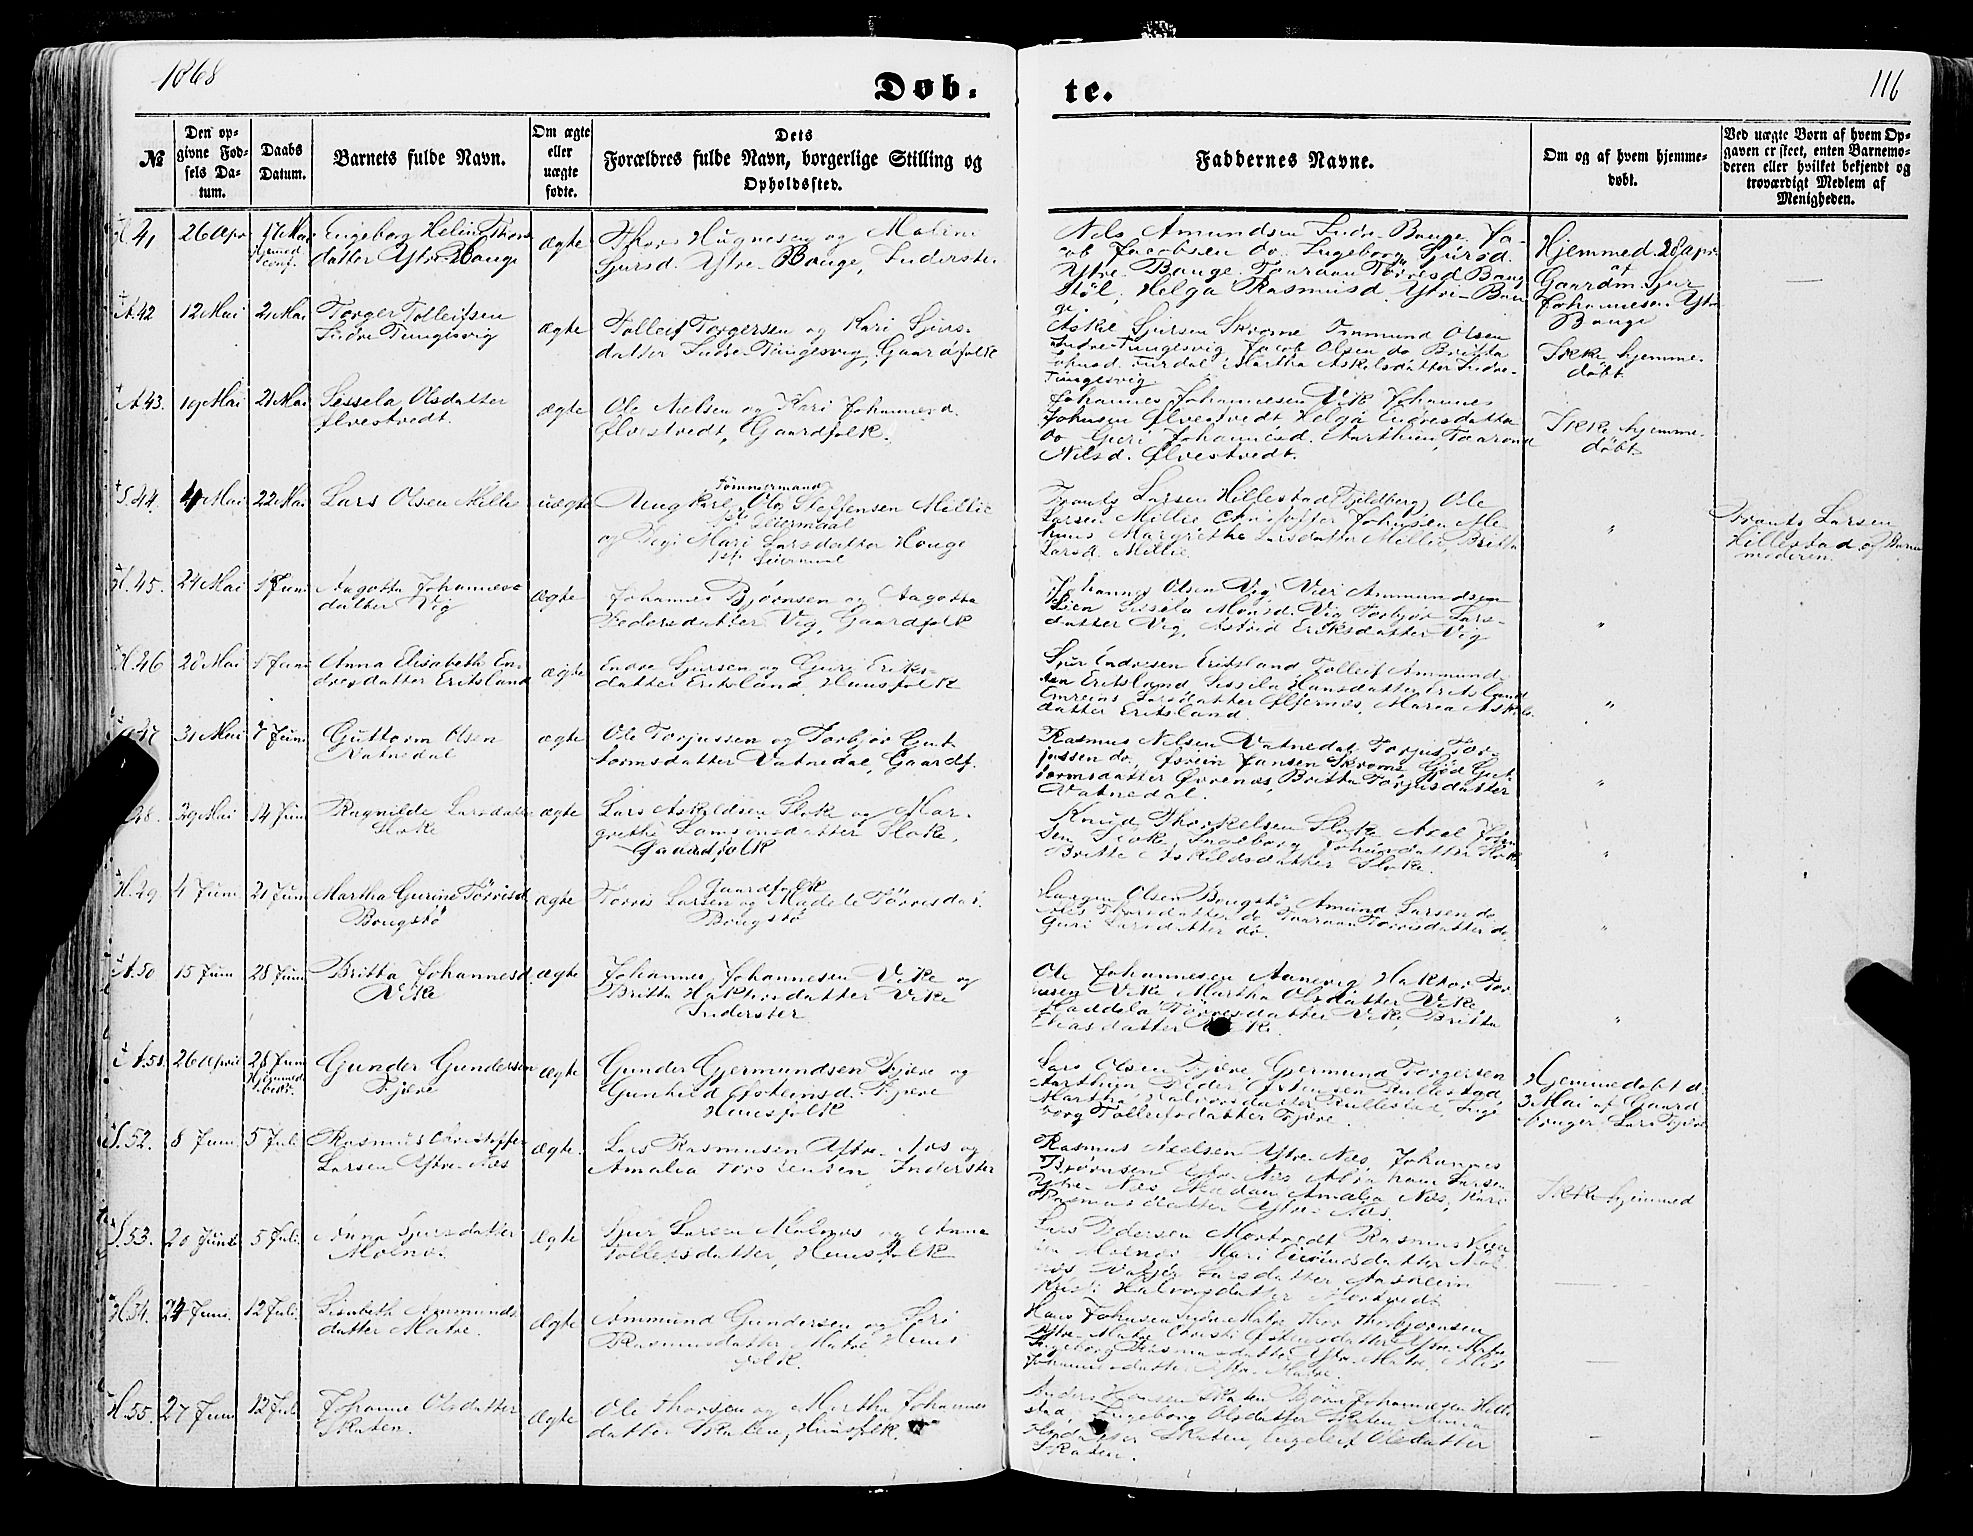 1868
Døb-
te.
116
№
Den op-
givne Fød-
sels Da-
tum.
Daabs
Datum.
Barnets fulde Navn.
Om ægte
eller
uægte
fødte.
Dets
Forældres fulde Navn, borgerlige Stilling og
Opholdssted.
Faddernes Navne.
Om og af hvem hjemme-
døbt.
Ved uægte Børn af hvem Op-
gaven er skeet, enten Barnemo-
deren eller hvilket bekjendt og
troværdigt Medlem af
Menigheden.
41 26 Apr 17 Mai
datter Ytre Bouge
ægte
og Malene
Sjursd. Ytre Bouge, Inderster
Nils Amundsen Indre Bouge Ja-
cob Jacobsen do. Ingeborg Sjursd.
Ytre Bouge
Støl, Helga Rasmusd. Ytre Bou-
ge
Hjemmed. 28 Apr.
af
Gaardm. Sjur
Johannesen Ytre
Bouge
42 12 Mai 21 Mai
Torger Tolleifsen
Indre Tungesvig
ægte
Tolleif Torgersen og Kari Sjurs-
datter Indre Tungesvig, Gaardfolk
Askel Sjursen Skromme Ommund Olsen
Indre Tungesvig Jacob Olsen do Britha
Martha Askelsdatter Indre
Tungesvig
Ikke hjemme-
døbt
A. 43. 19 Mai 21 Mai
Sissela Olsdatter
Ølvestvedt.
ægte
Ole Nielsen og Kari Johannesd.
Ølvestvedt, Gaardfolk.
Johannes Johannesen Vik Johannes
Johnsen Ølvestvedt, Helga Endresdatter
do Guri Johannesd.
Nilsd. Ølvestvedt.
Ikke hjemme-
døbt
S. 44. 4 Mai 22 Mai
Lars Olsen Millie
uægte
Tømmermand
Ungkarl Ole Steffensen Millie
1ste Leiermaal
og Pige Mari Larsdatter Houge
1ste Leiermaal
Larsen Hillestad Fjeldberg, Ole
Larsen Millie Christoffer Johnsen Me-
huus Margrethe Larsdatter Millie, Britta
Larsd. Millie
"
Larsen
Hillestad og Barne
moderen
H. 45. 24 Mai 1 Juni
Aagotta Johannes-
datter Vig
ægte
Johannes Bjørnsen og Aagotta
Pedersdatter Vig, Gaardfolk
Johannes Olsen Vig Ammundsen
Lien Sissela Monsd. Vig Torbjør Lars-
datter Vig, Astrid Eriksdatter Vig
"
46 28 Mai 1 Juni
Anna Elisabeth En-
dresdatter Eritsland
ægte
Endre Sjursen og Guri Eriks-
datter Eritsland, Huusfolk
Sjur Endresen Eritsland Tolleif Ammund-
sen Eritsland Sissila Hansdatter Eritsland
Larsdatter Maria Askels-
datter Eritsland.
"
47 31 Mai 7 Juni
Guttorm Olsen
Vatnedal
ægte
Ole Torjussen og Torbjør Gut-
tormsdatter Vatnedal, Gaardf.
Rasmus Nilsen Vatnedal Torjus Tor-
jussen do, Svein Jansen Gut-
tormsdatter Øvrenes, Britta Torjusdatter
Vatnedal.
"
48. Mai 14 Juni
Ragnilde Larsdatter
Støke
ægte
Lars Askeldsen Støke og Mar-
grethe Samsonsdatter Støke,
Gaardfolk
Knud Thorkelsen Støke Axel
Ingeborg
Britta Askildsdatter Støke.
"
H. 49 4 Juni 21 Juni
Martha Gurine Tørrisd
Bougstø
ægte
Gaardfolk
Tørris Larsen og Madele Tørrisdat.
Bougstø
Olsen Bougstø Amund Larsen do
Thorsdatter do Taaraan Torrisdatter do,
Guri Larsdatter do.
"
A. 50 15 Juni 28 Juni
Britta Johannesd.
Vike
ægte
Johannes Johannesen Vike og
Britta Haktorsdatter Vike
Inderster
Ole Johannesen Aanevig Haktor Tor-
Vike Martha Olsdatter Vike
Maddela Torresdatter Vike, Britta
Eliasdatter Vike.
"
A. 51 26 April 28 Juni
Gunder Gundersen
Fjære
ægte
Gunder Gjermundsen Fjære og
Gunhild Østensd. Fjære
Huusfolk
Lars Olsen Fjære, Gjermund Torgersen
Aarthun Peder Østensen Rullestad
Martha Halvorsdatter Rullestad, Inge-
borg Tolleifsdatter Fjære.
Hjemmedøbt d.
3 Mai af Gaard-
bruger Lars Fjære
S. 52. 8 Juni 5 Juli
Rasmus Christoffer
Larsen Ytre Næs
ægte.
Lars Rasmussen Ytre Næs og
Amalia Torstensen, Inderster
Rasmus Nielsen Ytre Næs, Johannes
Bjørnsen Ytre Næs Abraham Larsen
Ytre Næs Madam Amalia Næs, Kari
Rasmusdatter Ytre Næs.
Ikke hjemmed
S. 53. 20 Juni 5 Juli
Anna Sjursdatter
Molnes
ægte
Sjur Larsen Molnes og Anna
Tolleifsdatter, Huusfolk
Lars Pedersen Mortvedt Rasmus
Molnes Mari
Larsdatter Aasheim
Halvorsdatter Mortvedt
H. 54. 24 Juni. 12 Juli.
Lisabeth Ammunds
datter Matre.
ægte
Ammund Gundersen og Kari
Rasmusdatter Matre Huus
folk.
Hans Johnsen Indre Matre Thor Thorbjørnsen
Ytre Matre Christi Østensdatter Ytre Matre
Ingeborg Rasmusdatter Ytre Matre,
Johannesdatter Ytre Matre.
H. 55. 27 Juni 12 Juli
Johanne Olsdatter
Skaten.
ægte
Ole Thorsen og Martha Johannes
datter Skaten, Huusfolk.
Anders Hansen Skaten Bjørn Johannesen Hille-
stad, Ingeborg Olsdatter Skaten Anna
Olsdatter Skaten, Engeleif Olsdatter
Skaten.